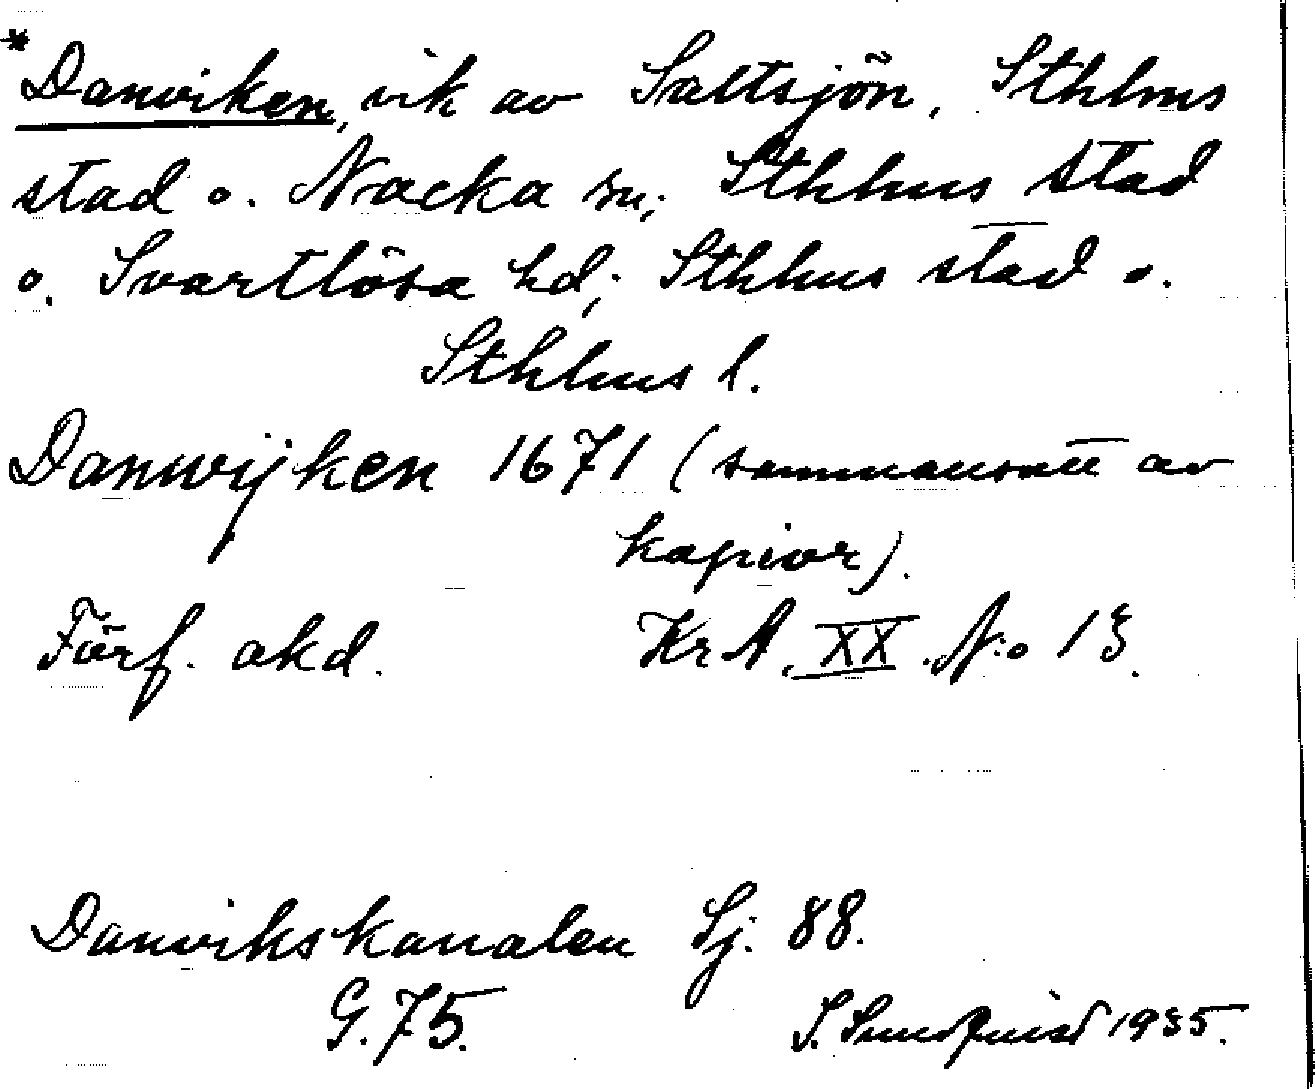 * Danviken, vik av Saltsjön, Sthlms
stad o. Nacka sn; Sthlms stad
o. Svartlösa hd; Sthlms stad o.
Sthlms l.
Danwijken 1671 (sammansatt av
kapior).
Förf. okd. KrA. XX. N:o 13.
Danvikskanalen Sj. 88.
G. 75.
S. Sundquist 1935.